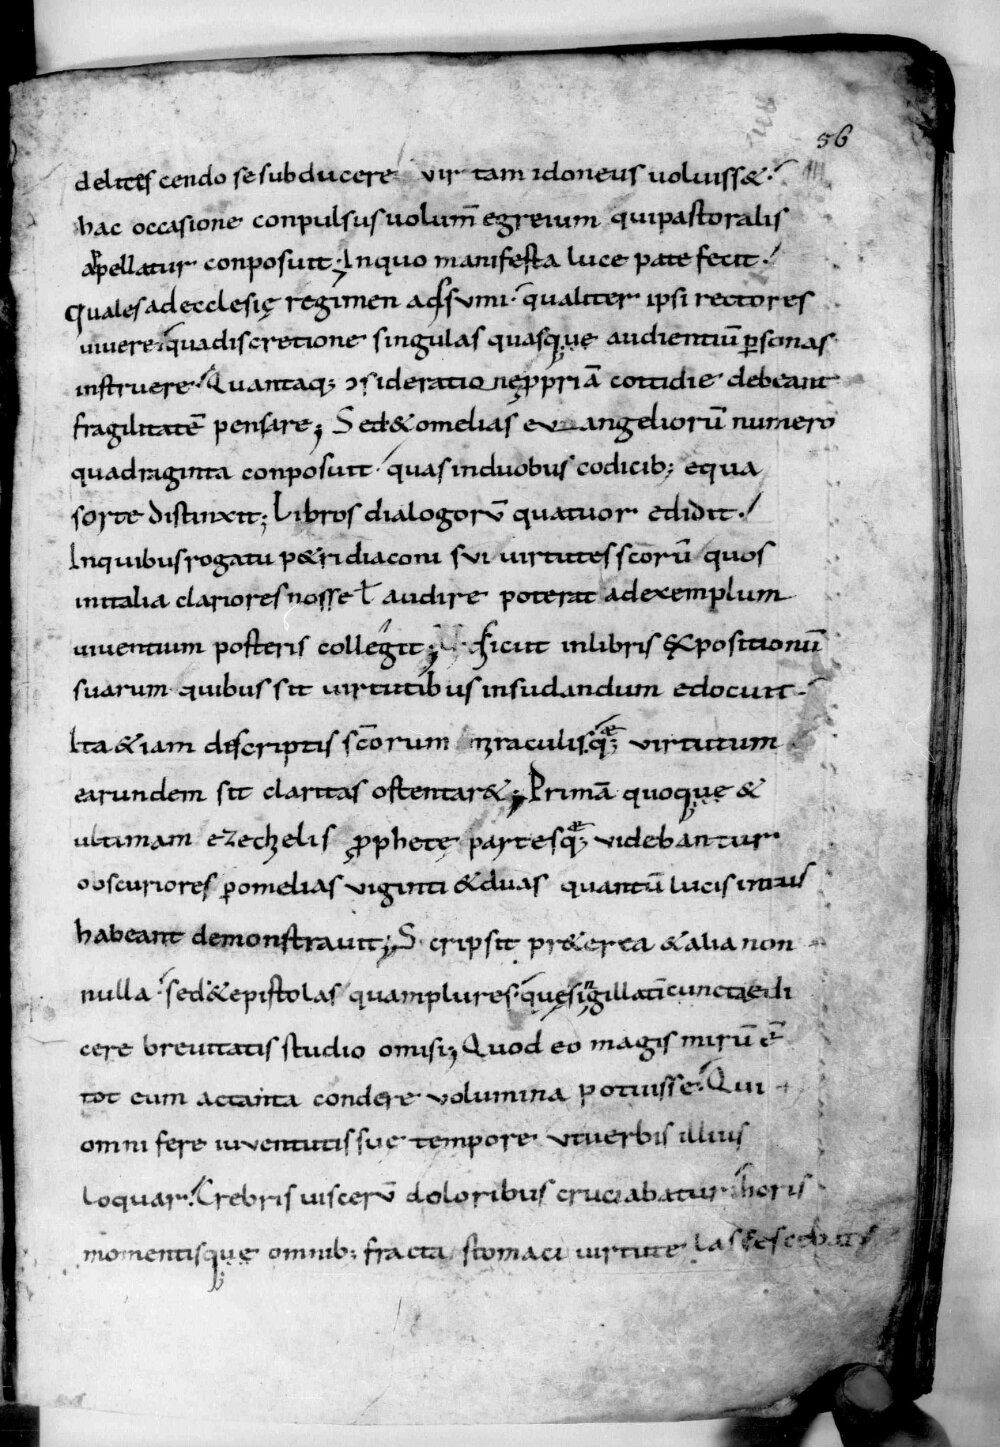 56
delites cendo se subducere vir tam idoneus voluiss&
hac occasione conpulsus volum̄ egreium qui pastoralis
appellatur conposuit; In quo manifesta luce pate fecit
Quales ad ecclesię regimen adsumi· qualiter ipsi rectores
vivere· qua discretione singulas quasque audientiū ꝑsonas
instruere· Quantaq; ɔsideratione ꝓpriā cottidie debeant
fragilitatē pensare; Sed & omelias evangeliorū numero
quadraginta conposuit· quas in duobus codicib; equa
sorte distinxit; Libros dialogorū quatuor edidit·
In quibus rogatu p&ri diaconi sui virtutes scorū quos
in italia clariores nosse ł audire poterat ad exemplum
viventium posteris collegit; sicut in libris expositionū
suarum quibus sit virtutibus insudandum edocuit
Ita & iam discriptis scōrum miraculis quę virtutum
earundem sit claritas ostentar&; Primā quoque &
ultimam ezechelis ꝓphetę partes quę videbantur
obscuriores ꝑ omelias viginti & duas quantū lucis intus
habeant demonstravit; Scripsit pr&erea & alia non
nulla· sed & epistolas quamplures· quę sigillatī cuncta edi
cere brevitatis studio omisi; Quod eo magis mirū ē
tot eum ac tanta condere volumina potuisse· Qui
omni fere iuventutis sue tempore ut verbis illius
loquar· Crebris viscerū doloribus cruciabatur· horis
momentisque omnib; fracta stomaci virtute lassescebat